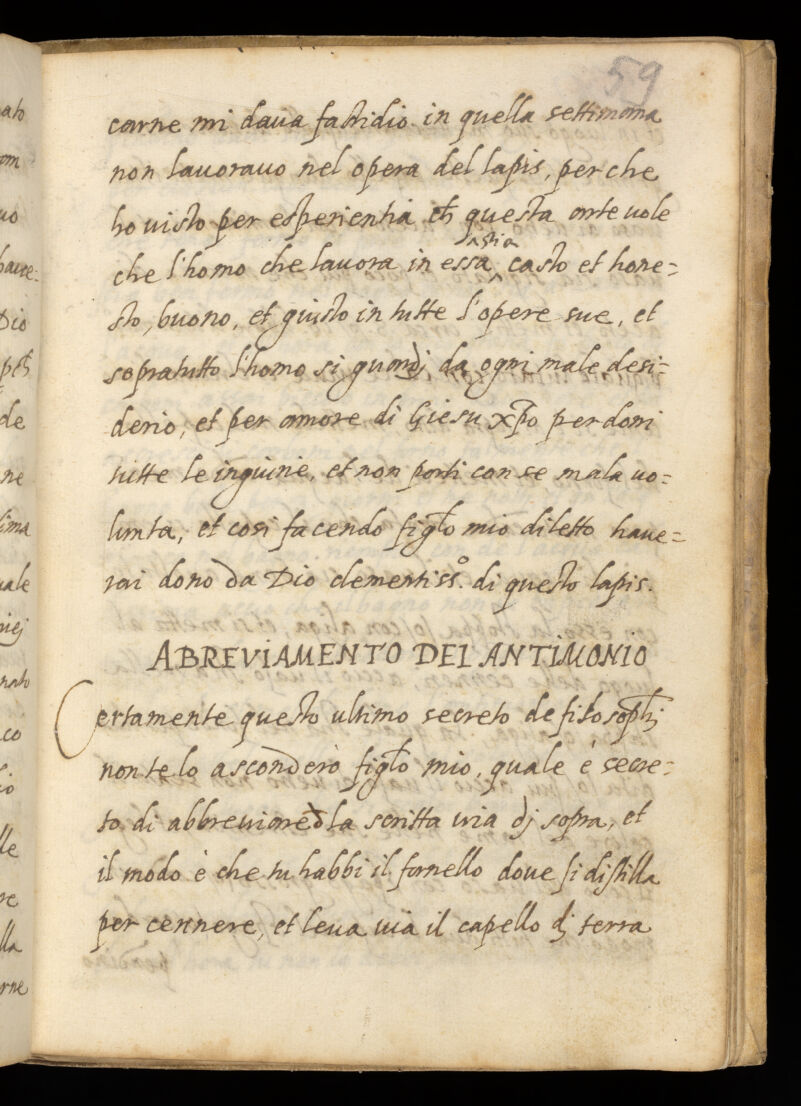 59
carne mi daua fastidio in quella settimana
non lauorauo nel opera del lapis, perche
ho uisto per esperientia ch̃ questa arte uole
che l'homo che lauora in essa ^ stia casto et hone=
sto, buono, et giusto in tutte l'opere sue, et
sopratutto l'homo si guardj da ogni male desi=
derio, et per amore di Giesu xp̃o perdoni
tutte le ingiurie, et non porti con se mala uo=
lunta, et cosi facendo figl̃o mio diletto haue=
rai dono da Dio clementiss.º di questo lapis.
ABREVIAMENTO DEL ANTIMONIO
Certamente questo ultimo secreto de filosophj
non te lo asconderò figl̃o mio, quale é secre=
to di abbreuiare la scritta uia dj sopra, et
il modo è che tu habbi il fornello doue si distilla
per cennere, et leua uia il capello dj terra